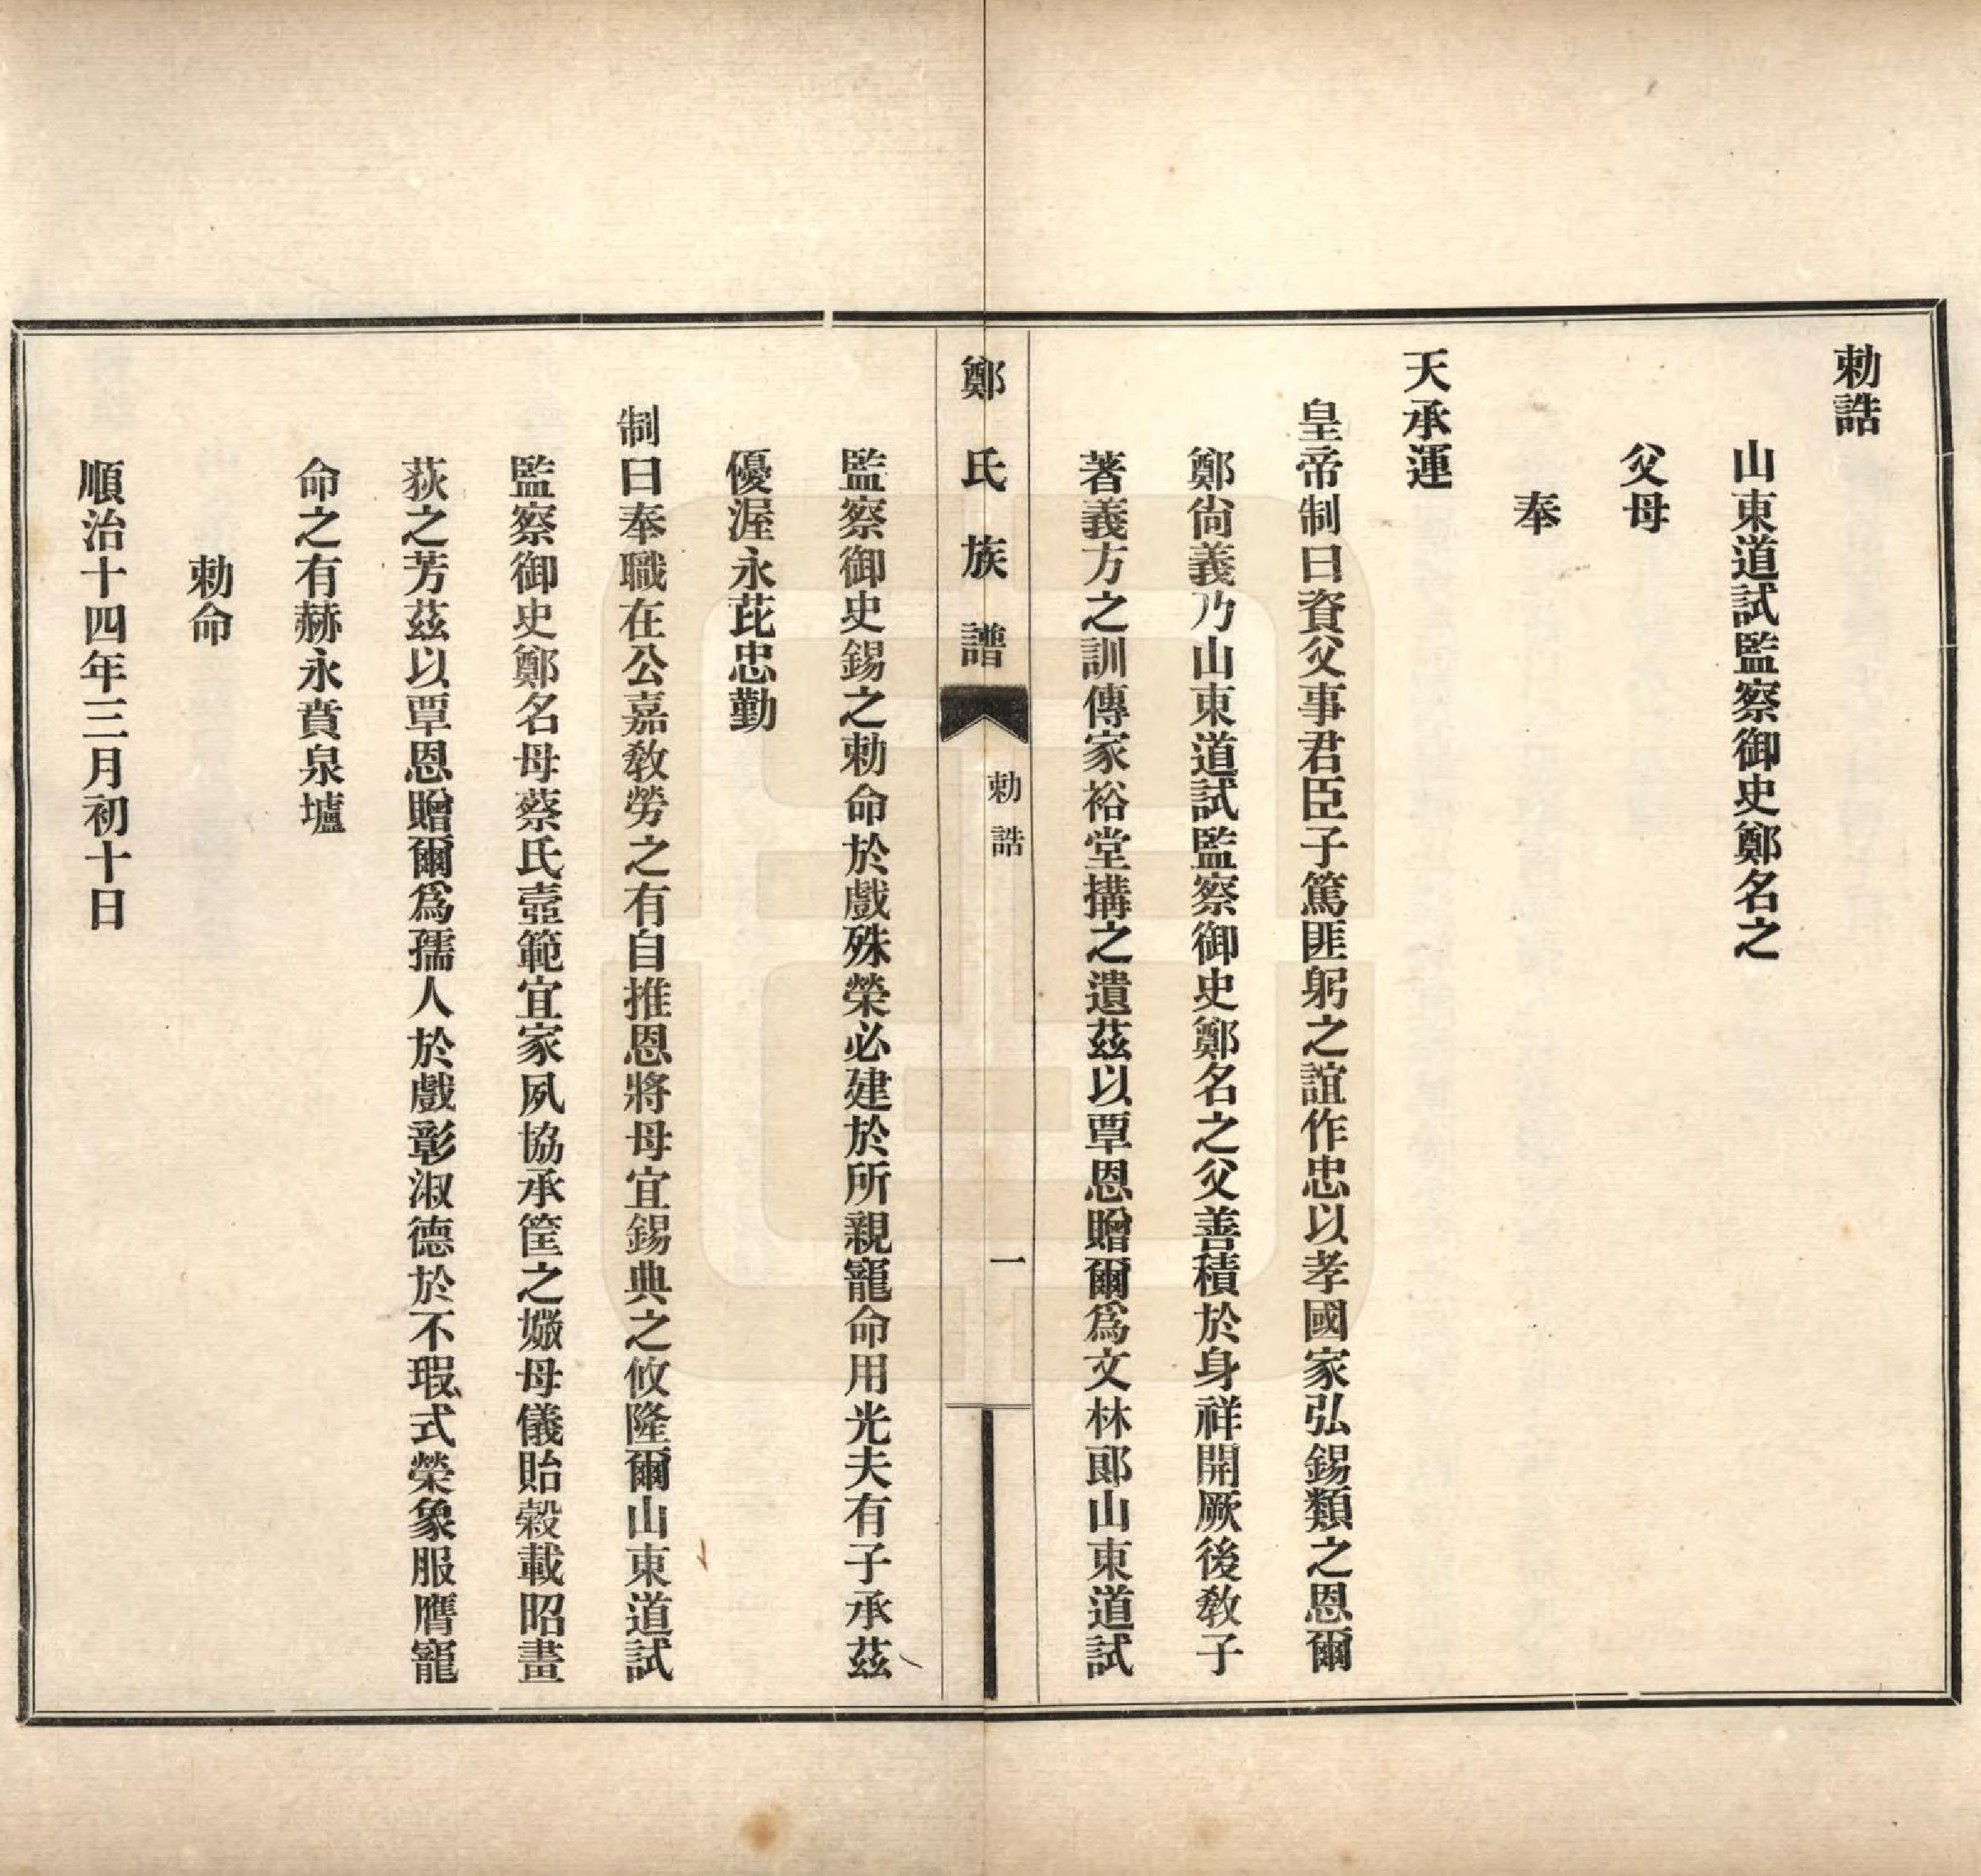 勅誥
山東道試監察御史鄭名之
父母
奉
天承運
皇帝制曰資父事君臣子篤匪躬之誼作忠以孝國家弘錫類之恩爾
鄭尙義乃山東道試監察御史鄭名之父善積於身祥開厥後敎子
著義方之訓傳家裕堂搆之遺茲以覃恩贈爾爲文林郞山東道試
鄭氏族譜
勅誥
一
監察御史錫之勅命於戲殊榮必建於所親寵命用光夫有子承茲
優渥永茈忠勤
制曰奉職在公嘉敎勞之有自推恩將母宜錫典之攸隆爾山東道試
監察御史鄭名母蔡氏壼範宜家夙協承筐之媺母儀貽榖載昭畫
荻之芳茲以覃恩贈爾爲孺人於戲彰淑德於不瑕式榮象服膺寵
命之有赫永賁泉壚
勅命
順治十四年三月初十日